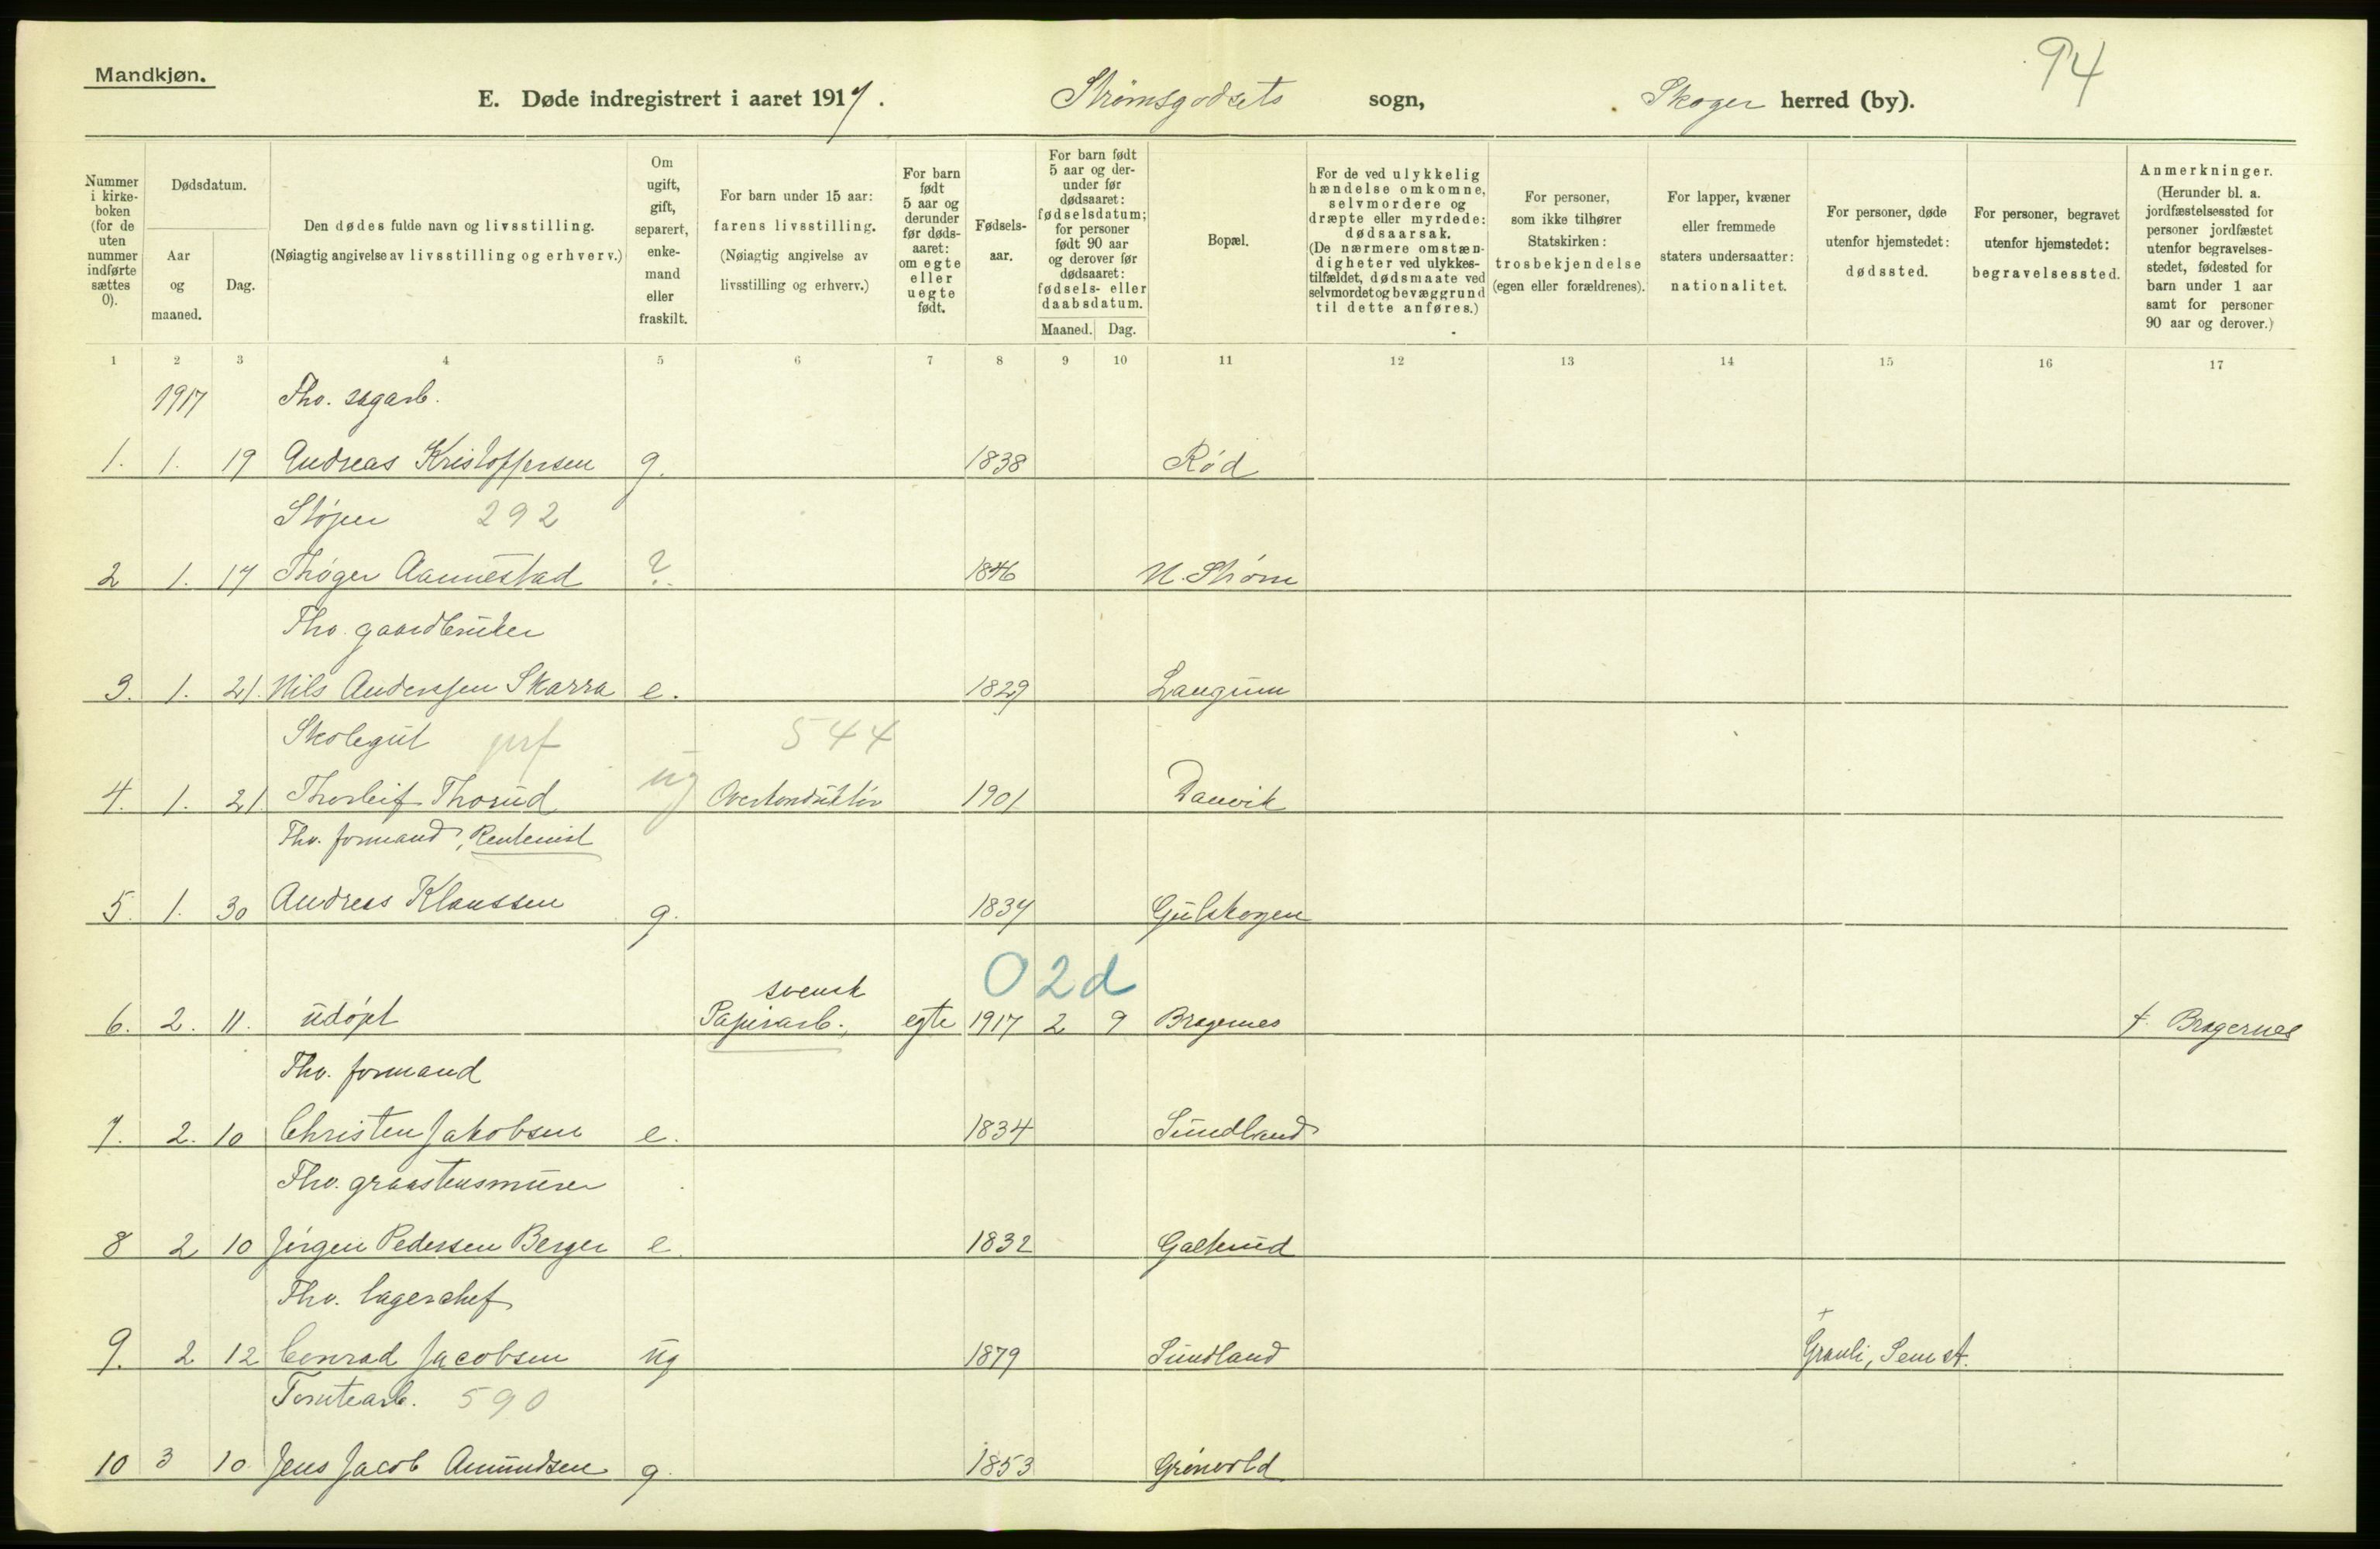 94
Mandkjøn.
E. Døde indregistrert i aaret 1917. Strømsgodsets sogn, Skoger herred (by).
Nummer i kirke-boken (for de uten nummer indførte sættes 0).
Dødsdatum.
Aar og maaned.
Dag.
Den dødes fulde navn og livsstilling.
(Nøiagtig angivelse av livsstilling og erhverv.)
Om ugift, gift, separert, enke-mand eller fraskilt.
For barn under 15 aar: farens livsstilling. (Nøiagtig angivelse av livsstilling og erhverv.)
For barn født 5 aar og derunder før døds-aaret: om egte eller uegte født.
Fødsels-aar.
For barn født 5 aar og der-under før dødsaaret: fødselsdatum; for personer født 90 aar og derover før dødsaaret: fødsels- eller daabsdatum.
Maaned. Dag.
Bopæl.
For de ved ulykkelig hændelse omkomne, selvmordere og dræpte eller myrdede: dødsaarsak. (De nærmere omstæn-digheter ved ulykkes-tilfældet, dødsmaate ved selvmordet og bevæggrund til dette anføres.)
For personer, som ikke tilhører Statskirken: trosbekjendelse (egen eller forældrenes).
For lapper, kvæner eller fremmede staters undersaatter: nationalitet.
For personer, døde utenfor hjemstedet: dødssted.
For personer, begravet utenfor hjemstedet: begravelsessted.
Anmerkninger. (Herunder bl. a. jordfæstelsessted for personer jordfæstet utenfor begravelses-stedet, fødested for barn under 1 aar samt for personer 90 aar og derover.)
1 2 3 4 5 6 7 8 9 10 11 12 13 14 15 16 17
1917 Fhv. sagarb.
1. 1. 19 Andreas Kristoffersen g. 1838 Rød
Støper 292
2 1. 17 Thøger Aannestad ?. 1846 N. Strøm
Fhv. gaardbruker
3. 1. 21. Nils Anderssen Skarra e. 1829 Langum
Skolegut 544
4. 1. 21 Thorleif Thorud ug Overkonduktør 1901 Danvik
Fhv. formand, Rentenist
5. 1. 30 Andreas Klaussen g. 1837 Gulskogen
02d
svensk
6. 2. 11. udøpt Papirarb., egte 1917 2 9 Bragernes f. Bragernes
Fhv. formand
7. 2. 10 Christen Jakobsen e. 1834 Sundland
Fhv. graastensmurer
8 2 10 Jørgen Pedersen Berger e. 1832 Galterud
Fhv. lagerchef
9. 2 12 Conrad Jacobsen ug 1879 Sundland Granli, Sem st.
Tomtearb. 590
10 3 10. Jens Jacob Amundsen g. 1853 Grønvold